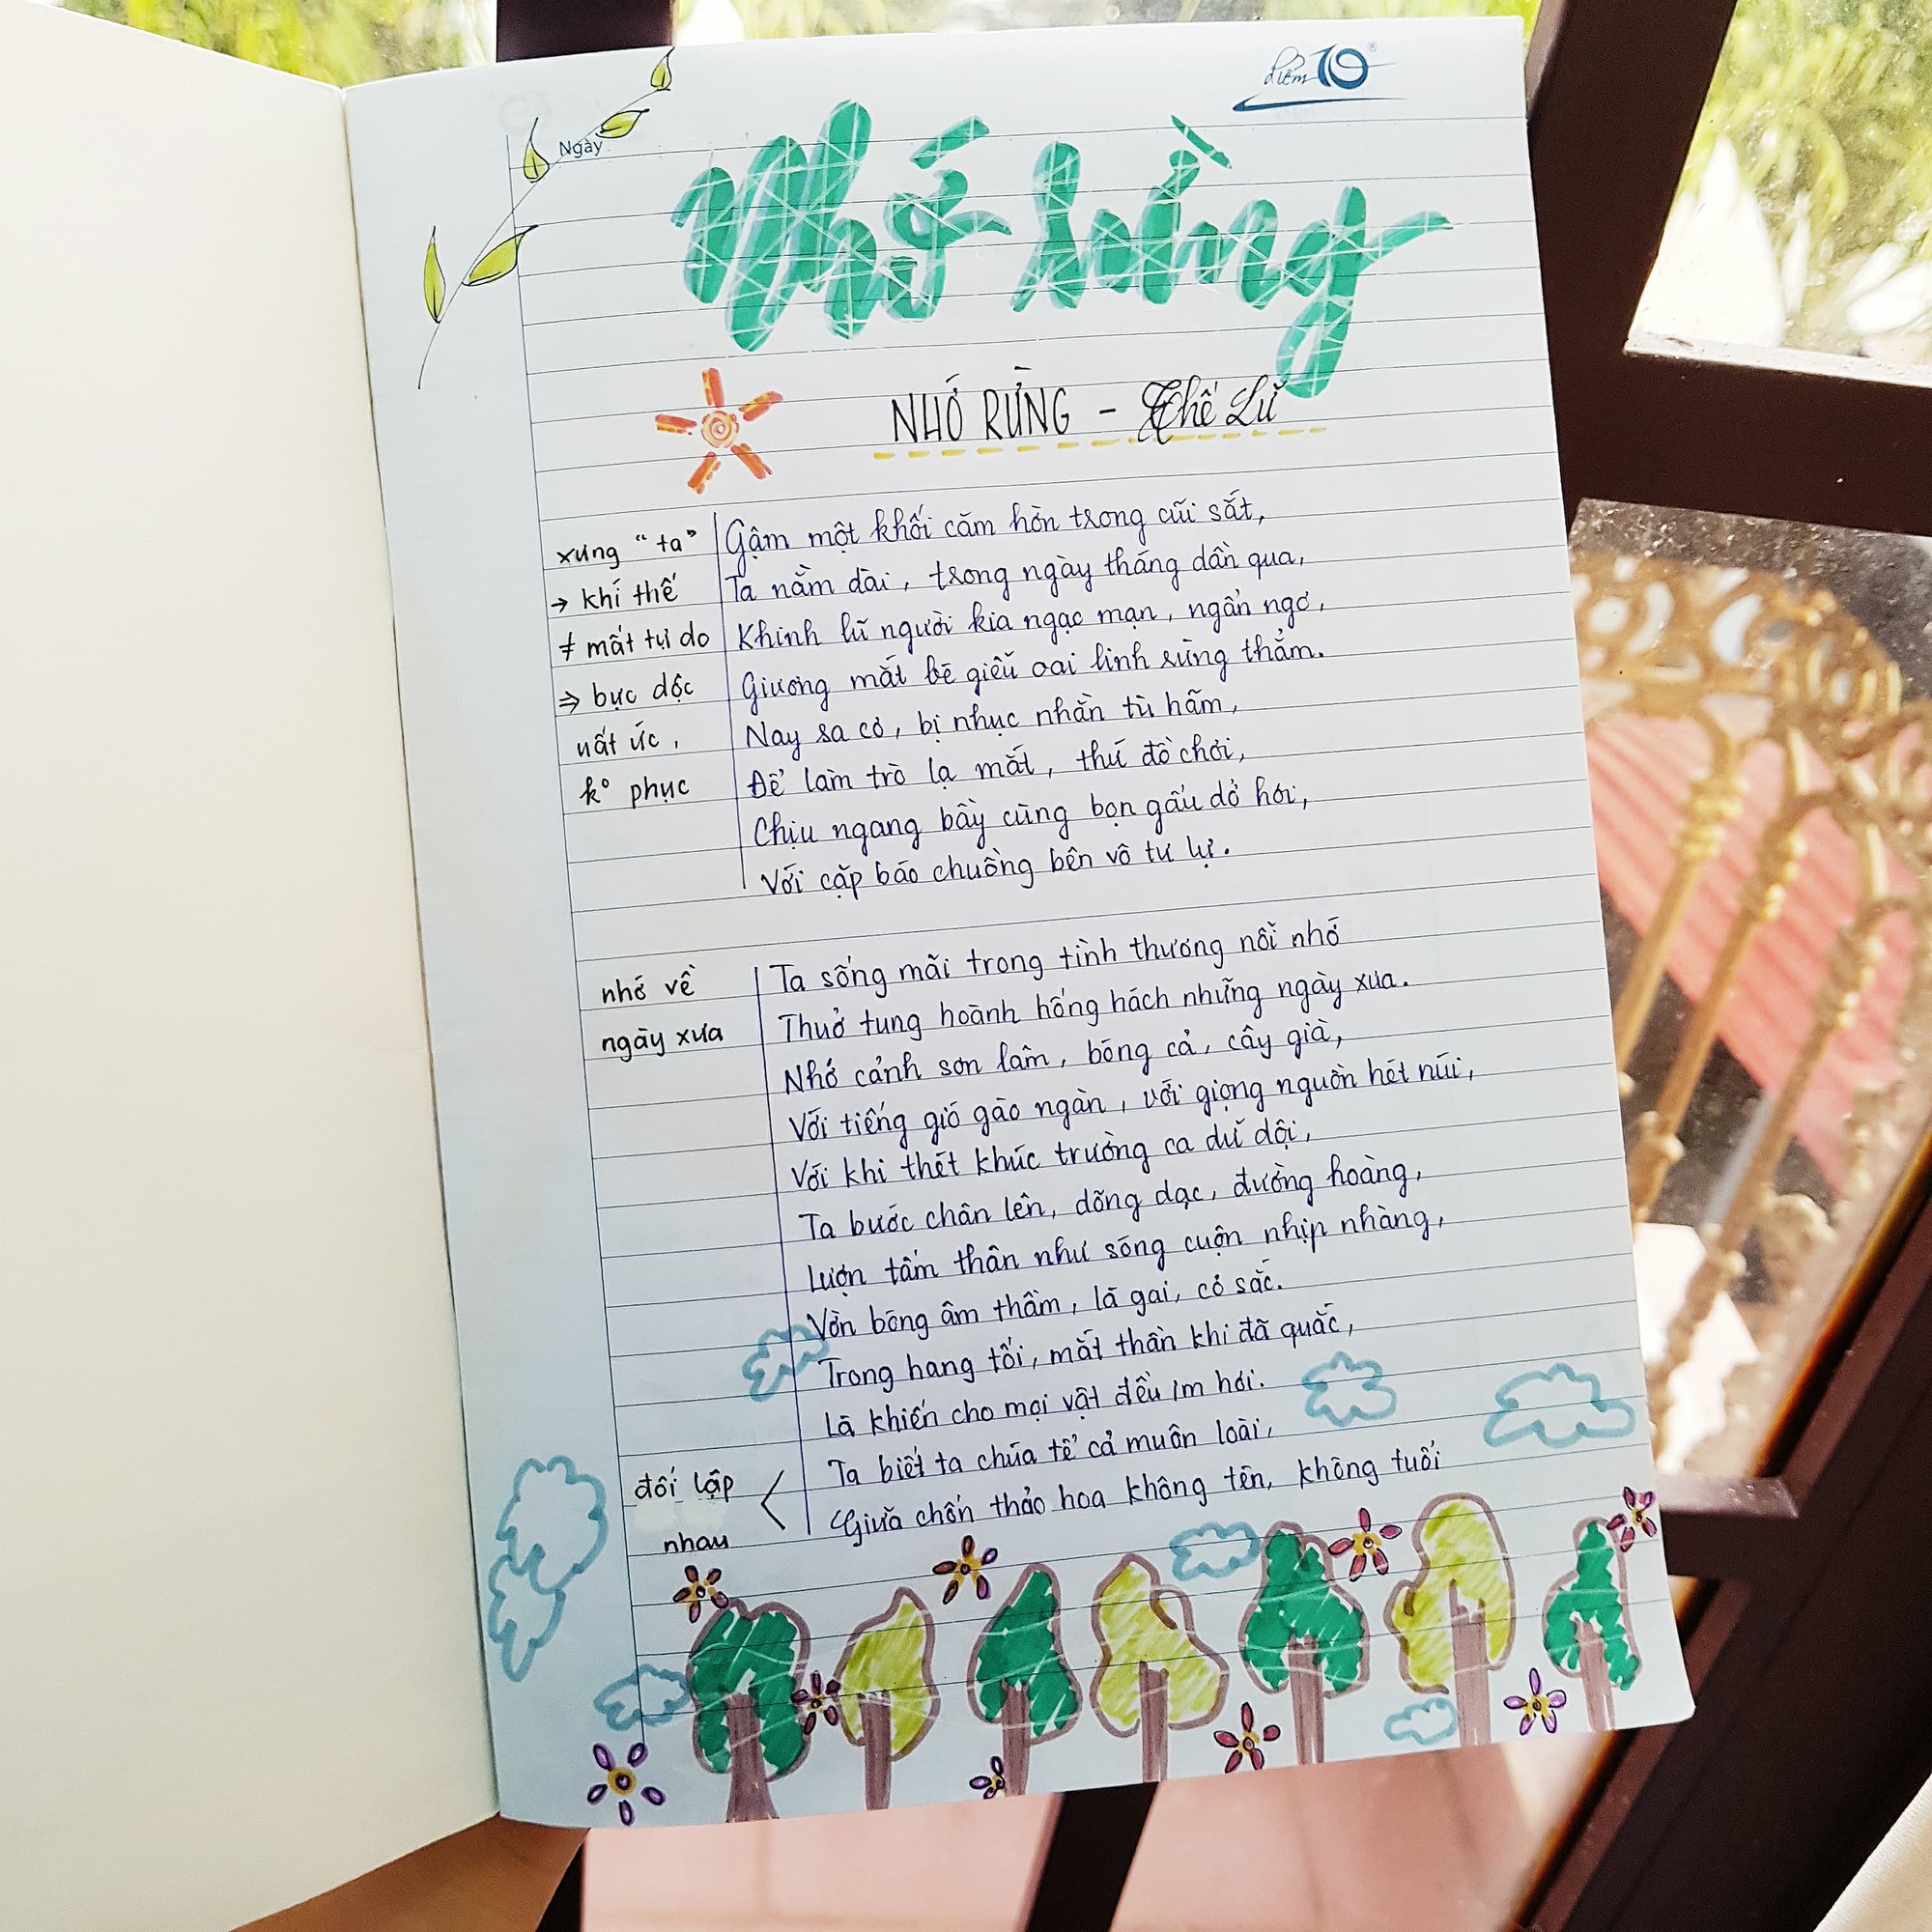 điểm 10
Ngày
Nhớ rừng
NHỚ RỪNG - Thế Lữ
xưng "ta"
→ khí thế
≠ mất tự do
⇒ bực dọc
uất ức,
k° phục
Gậm một khối căm hờn trong cũi sắt,
Ta nằm dài, trong ngày tháng dần qua,
Khinh lũ người kia ngạo mạn, ngẩn ngơ,
Giương mắt bé giễu oai linh rừng thẳm.
Nay sa cơ, bị nhục nhằn tù hãm,
Để làm trò lạ mắt, thứ đồ chơi,
Chịu ngang bầy cùng bọn gấu dở hơi,
Với cặp báo chuồng bên vô tư lự.
nhớ về
ngày xưa
Ta sống mãi trong tình thương nỗi nhớ
Thuở tung hoành hống hách những ngày xưa.
Nhớ cảnh sơn lâm, bóng cả, cây già,
Với tiếng gió gào ngàn, với giọng nguồn hét núi,
Với khi thét khúc trường ca dữ dội,
Ta bước chân lên, dõng dạc, đường hoàng,
Lượn tấm thân như sóng cuộn nhịp nhàng,
Vờn bóng âm thầm, lá gai, cỏ sắc.
Trong hang tối, mắt thần khi đã quắc,
Là khiến cho mọi vật đều im hơi.
Ta biết ta chúa tể cả muôn loài,
Giữa chốn thảo hoa không tên, không tuổi
đối lập
nhau